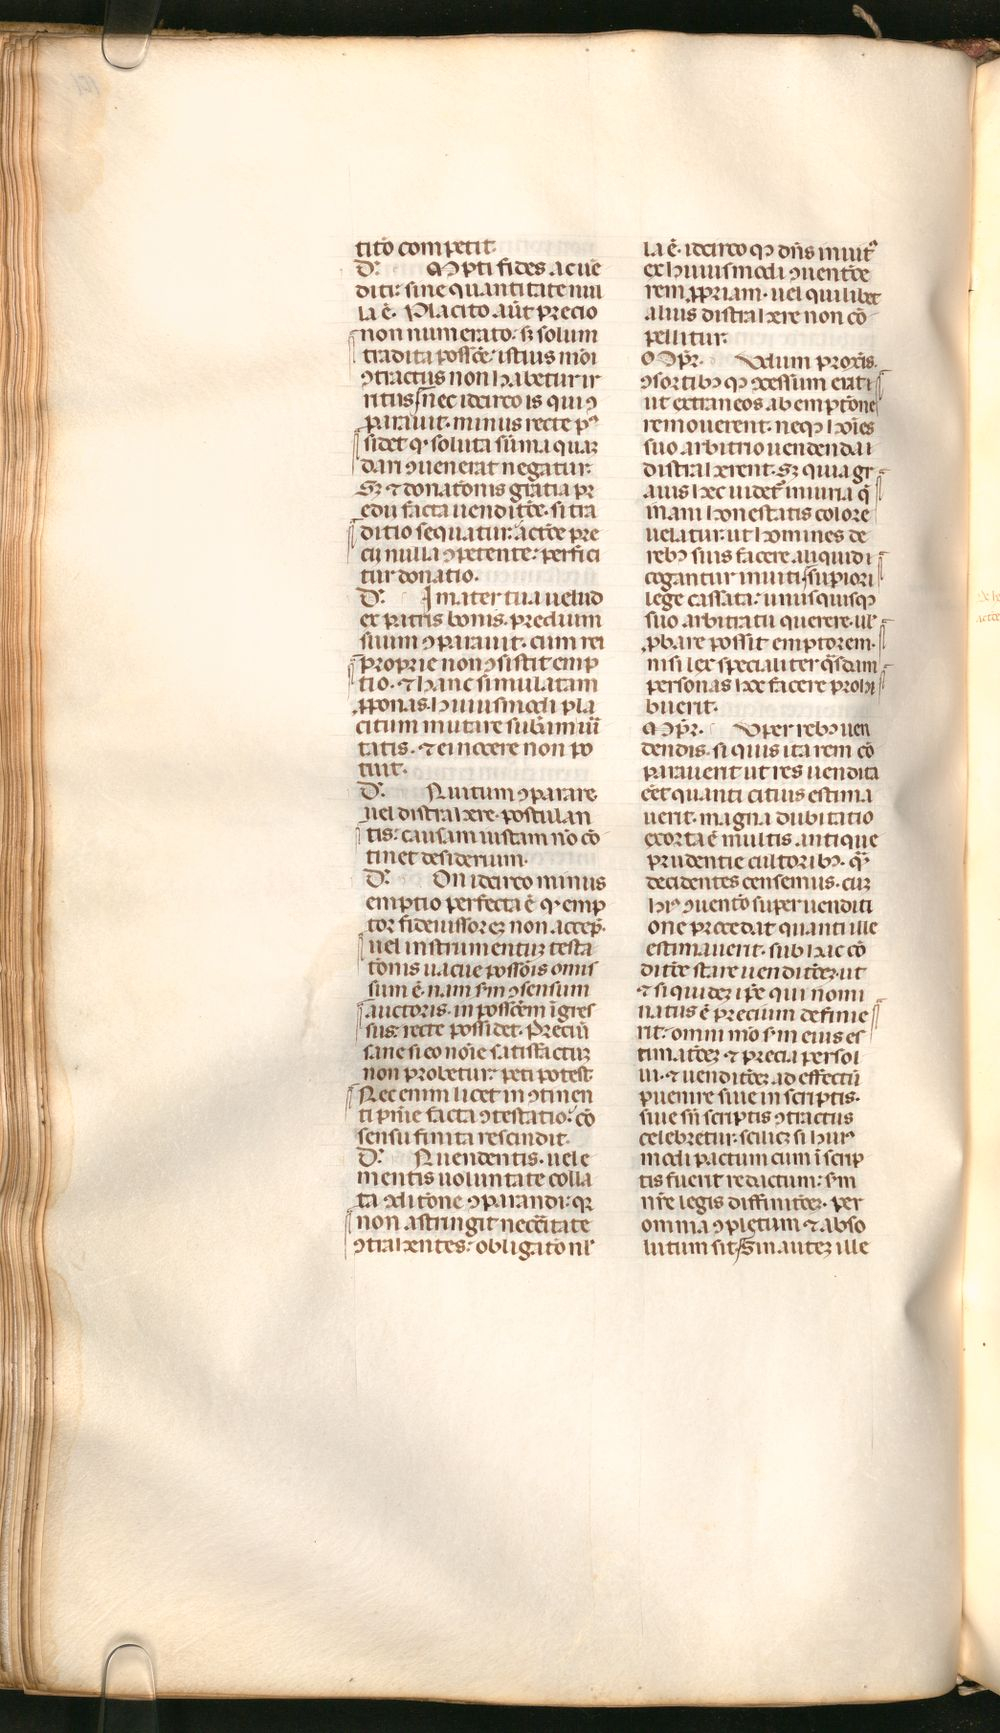 titō competit.
D̄. Mpti fides ac uē
diti: sine quantitate nul
la ē. Placito aūt precio
non numerato: s; solum
tradita possc̄e: istius mōi
ꝯtractus non habetur ir
ritus nec idcirco is qui ꝯ
parauit. minus recte pͦ
sidet qͥ soluta sūma quaꝫ
dari ꝯuenerat negatur.
Sꝫ ⁊ donatōnis gratia pr
edii facta uenditōe. si tra
ditio sequatur: actōe pre
cii nulla ꝯpetente: perfici
tur donatio.
D̄. I mater tua uelud
ex patris bonis. predium
suum ꝯparauit. cum rei
proprie non ꝯsistit emp
tio. ⁊ hanc simulatam
ꝓponas. huiusmodi pla
citum mutare subiminū
tatis. ⁊ ei nocere non po
tuit.
D̄. Nuitum ꝯparare
uel distrahere. postulan
tis: causam iustam nō cō
tinet desiderium.
D̄. On idcirco minus
emptio perfecta ē qͥ emp
tor fideiussoreꝫ non accep̄.
uel instrumentuꝫ testa
tōnis uacue possōis omis
sum ē. nam sm ꝯsensum
auctoris. in possc̄em īgres
sus: recte possidet. Preciū
sane si eo noīe satisfactuꝫ
non probetur: peti potest.
Nec enim licet in ꝯtinen
ti pn̄ie facta ꝯtestatio: cō
sensu finita rescindit.
D̄. Nuendentis. uel e
mentis uoluntate colla
ta ꝯditōne ꝯparandi: qꝛ
non astringit necc̄itate
ꝯtrahentes: obligatō nl̓
la ē. idcirco qꝫ dn̄s inuitꝰ
ex huiusmodi ꝯuentōe
rem ꝓpriam. uel quilibet
alius distrahere non cō
pellitur.
O Dp̄r. Vdum proxīs.
ꝯsortibꝫ qꝫ ꝯcessum erat:
ut extraneos ab emptōne
remouerent. neqꝫ hoīes
suo arbitrio uendenda
distraherent. Sꝫ quia gr
auis hec uidet̄ iniuria q̄
inani honestatis colore
uelatur. ut homines de
rebꝫ suis facere aliquid
cogantur inuiti: supiori
lege cassata: unusquisqꝫ
suo arbitratu querere. ul̓
ꝓbare possit emptorem.
nisi lex specialiter q̄sdam
personas hoc facere prohi
buerit.
M Dp̄r. Vper rebꝫ uen
dendis. si quis ita rem cō
parauerit ut res uendita
ēēt quanti titius estima
uerit. magna dubitatio
exorta ē multis antique
prudentie cultoribꝫ. qͣꝫ
decidentes censemus. cuꝫ
hrͥ ꝯuentō super uenditi
one procedat quanti ille
estimauerit. sub hac cō
ditōe stare uenditōeꝫ. ut
⁊ si quideꝫ ipē qui nomi
natus ē precium definie
rit: omni mō sm eius es
timatōeꝫ ⁊ precia persol
ui. ⁊ uenditōeꝫ ad effectū
puenire siue in scriptis.
siue sn̄ scriptis ꝯtractus
celebretur. scilicꝫ si huiꝰ
modi pactum cum ī scrip
tis fuerit redactum: sm
nr̄e legis diffinitōeꝫ. per
omnia ꝯpletum ⁊ abso
lutum sit. Sin auteꝫ ille